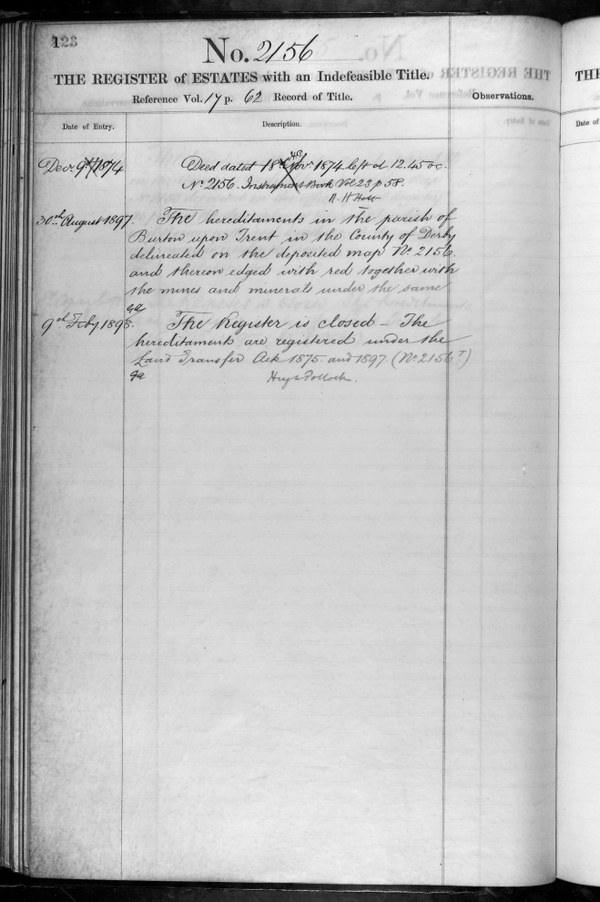 123
No. 2156
THE REGISTER of ESTATES with an Indefeasible Title.
Reference Vol. 17 p. 62 Record of Title.
Observations.
Date of Entry.
Description.
Decr. 9th 1874
Deed dated 18 Novr. 1874 left at 12.45 oc.
No. 2156. Instrument Book Vol 23 p 58.
R. H. Holt
30th August 1897.
The hereditaments in the parish of
Burton upon Trent in the County of Derby
delineated on the deposited map No. 2156
and thereon edged with red together with
the mines and minerals under the same
9th Feby 1898.
The Register is closed – The
hereditaments are registered under the
Land Transfer Acts 1875 and 1897 (No. 2156 T)
Hugh Pollock.
THE
Date of